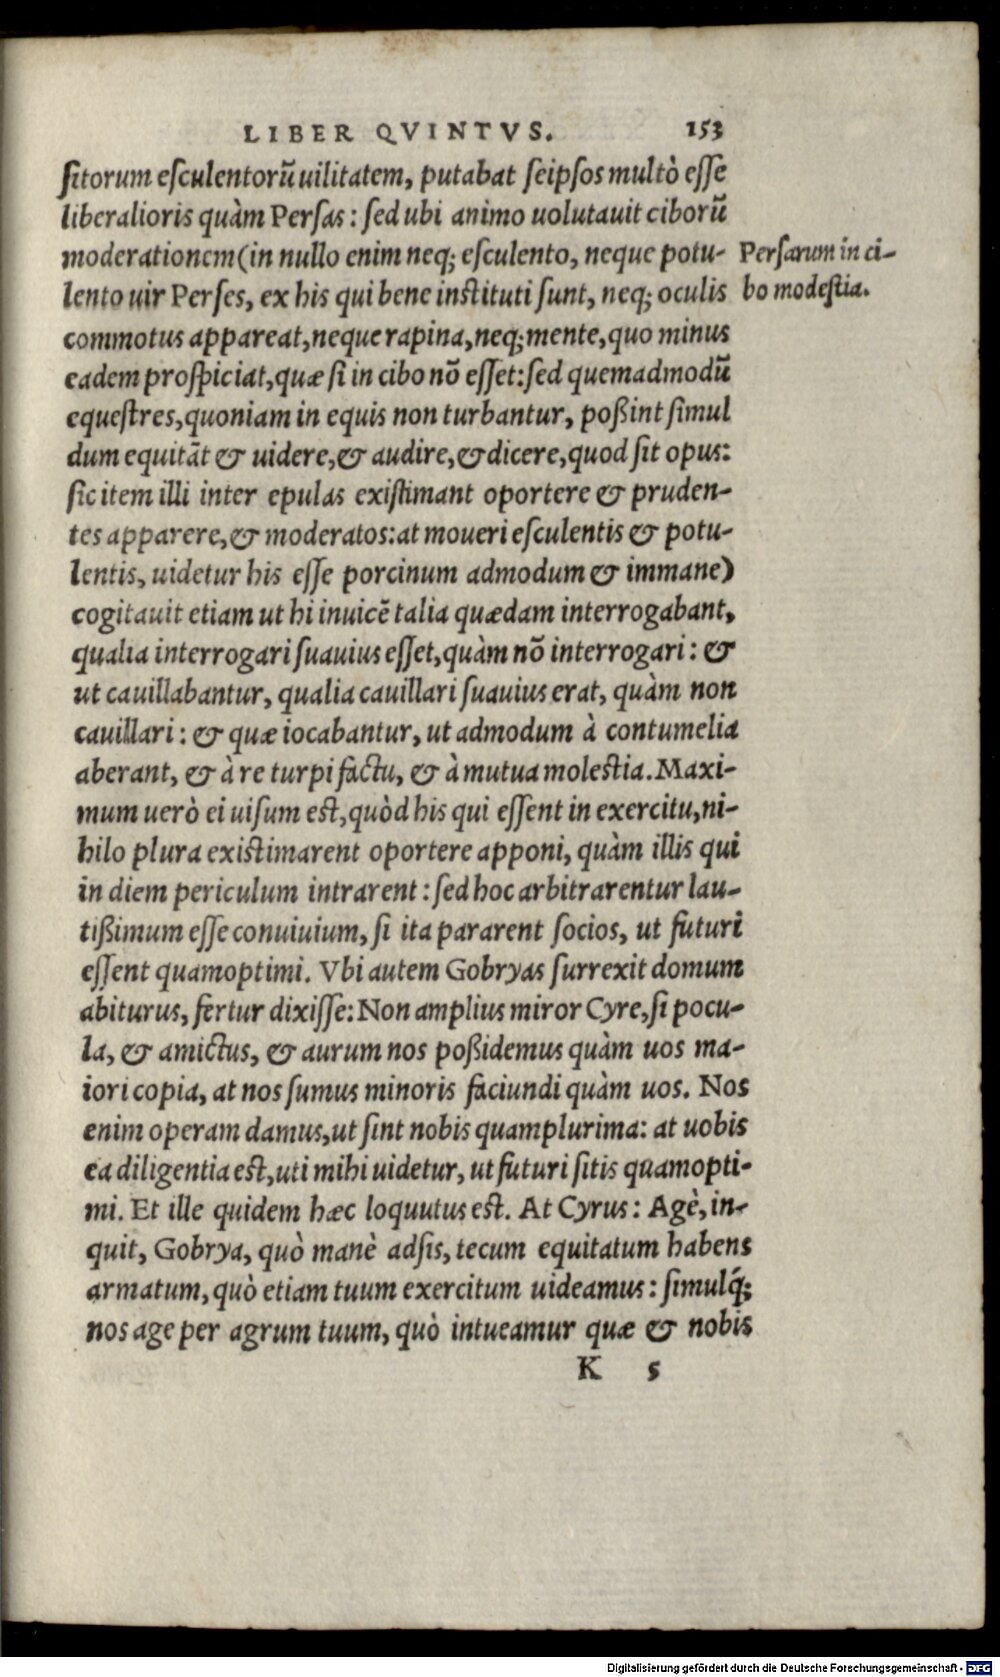 LIBER QVINTVS. 153
sitorum esculentorũ uilitatem, putabat seipsos multò esse
liberalioris quàm Persas: sed ubi animo uolutauit ciborũ
moderationem (in nullo enim neq; esculento, neque potu-
Persarum in ci-
lento uir Perses, ex his qui bene instituti sunt, neq; oculis
bo modestia.
commotus appareat, neque rapina, neq; mente, quo minus
eadem prospiciat, quæ si in cibo nõ esset: sed quemadmodũ
equestres, quoniam in equis non turbantur, poßint simul
dum equitãt & uidere, & audire, & dicere, quod sit opus:
sic item illi inter epulas existimant oportere & pruden-
tes apparere, & moderatos: at moueri esculentis & potu-
lentis, uidetur his esse porcinum admodum & immane)
cogitauit etiam ut hi inuicẽ talia quædam interrogabant,
qualia interrogari suauius esset, quàm nõ interrogari: &
ut cauillabantur, qualia cauillari suauius erat, quàm non
cauillari: & quæ iocabantur, ut admodum à contumelia
aberant, & à re turpi factu, & à mutua molestia. Maxi-
mum uerò ei uisum est, quòd his qui essent in exercitu, ni-
hilo plura existimarent oportere apponi, quàm illis qui
in diem periculum intrarent: sed hoc arbitrarentur lau-
tißimum esse conuiuium, si ita pararent socios, ut futuri
essent quamoptimi. Vbi autem Gobryas surrexit domum
abiturus, fertur dixisse: Non amplius miror Cyre, si pocu-
la, & amictus, & aurum nos poßidemus quàm uos ma-
iori copia, at nos sumus minoris faciundi quàm uos. Nos
enim operam damus, ut sint nobis quamplurima: at uobis
ea diligentia est, uti mihi uidetur, ut futuri sitis quamopti-
mi. Et ille quidem hæc loquutus est. At Cyrus: Agè, in-
quit, Gobrya, quò manè adsis, tecum equitatum habens
armatum, quò etiam tuum exercitum uideamus: simulq́;
nos age per agrum tuum, quò intueamur quæ & nobis
K 5
Digitalisierung gefördert durch die Deutsche Forschungsgemeinschaft - DFG